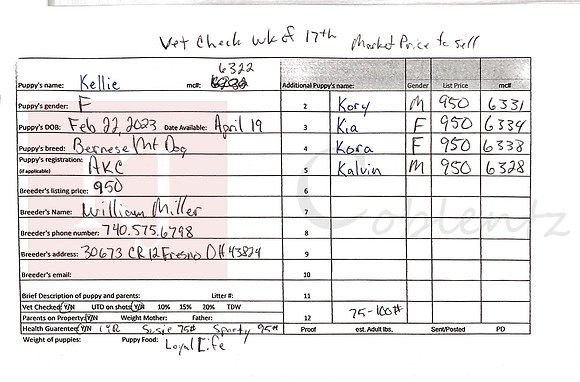 Vet Check wk of 17th Market Price to sell
6322
Puppy's name: Kellie mc#:
Additional Puppy's name: Gender List Price mc#
Puppy's gender: F
2 Kory M 950 6331
Puppy's DOB: Feb 22, 2023 Date Available: April 19
3 Kia F 950 6334
Puppy's breed: Bernese Mt Dog
4 Kora F 950 6338
Puppy's registration: (if applicable) AKC
5 Kalvin M 950 6328
Breeder's listing price: 950
6
Breeder's Name: William Miller
7
Breeder's phone number: 740.575.6798
8
Breeder's address: 30673 CR 12 Fresno OH 43824
9
Breeder's email:
10
Brief Description of puppy and parents: Litter#:
11
Vet Checked: Y/N UTD on shots: Y/N 10% 15% 20% TDW
Parents on Property: Y/N Weight Mother: Father:
12 75-100#
Health Guarantee: Y/N 1 YR Susie 75# Sparty 95#
Proof est. Adult lbs. Sent/Posted PD
Weight of puppies: Puppy Food: Loyal Life
Coblentz